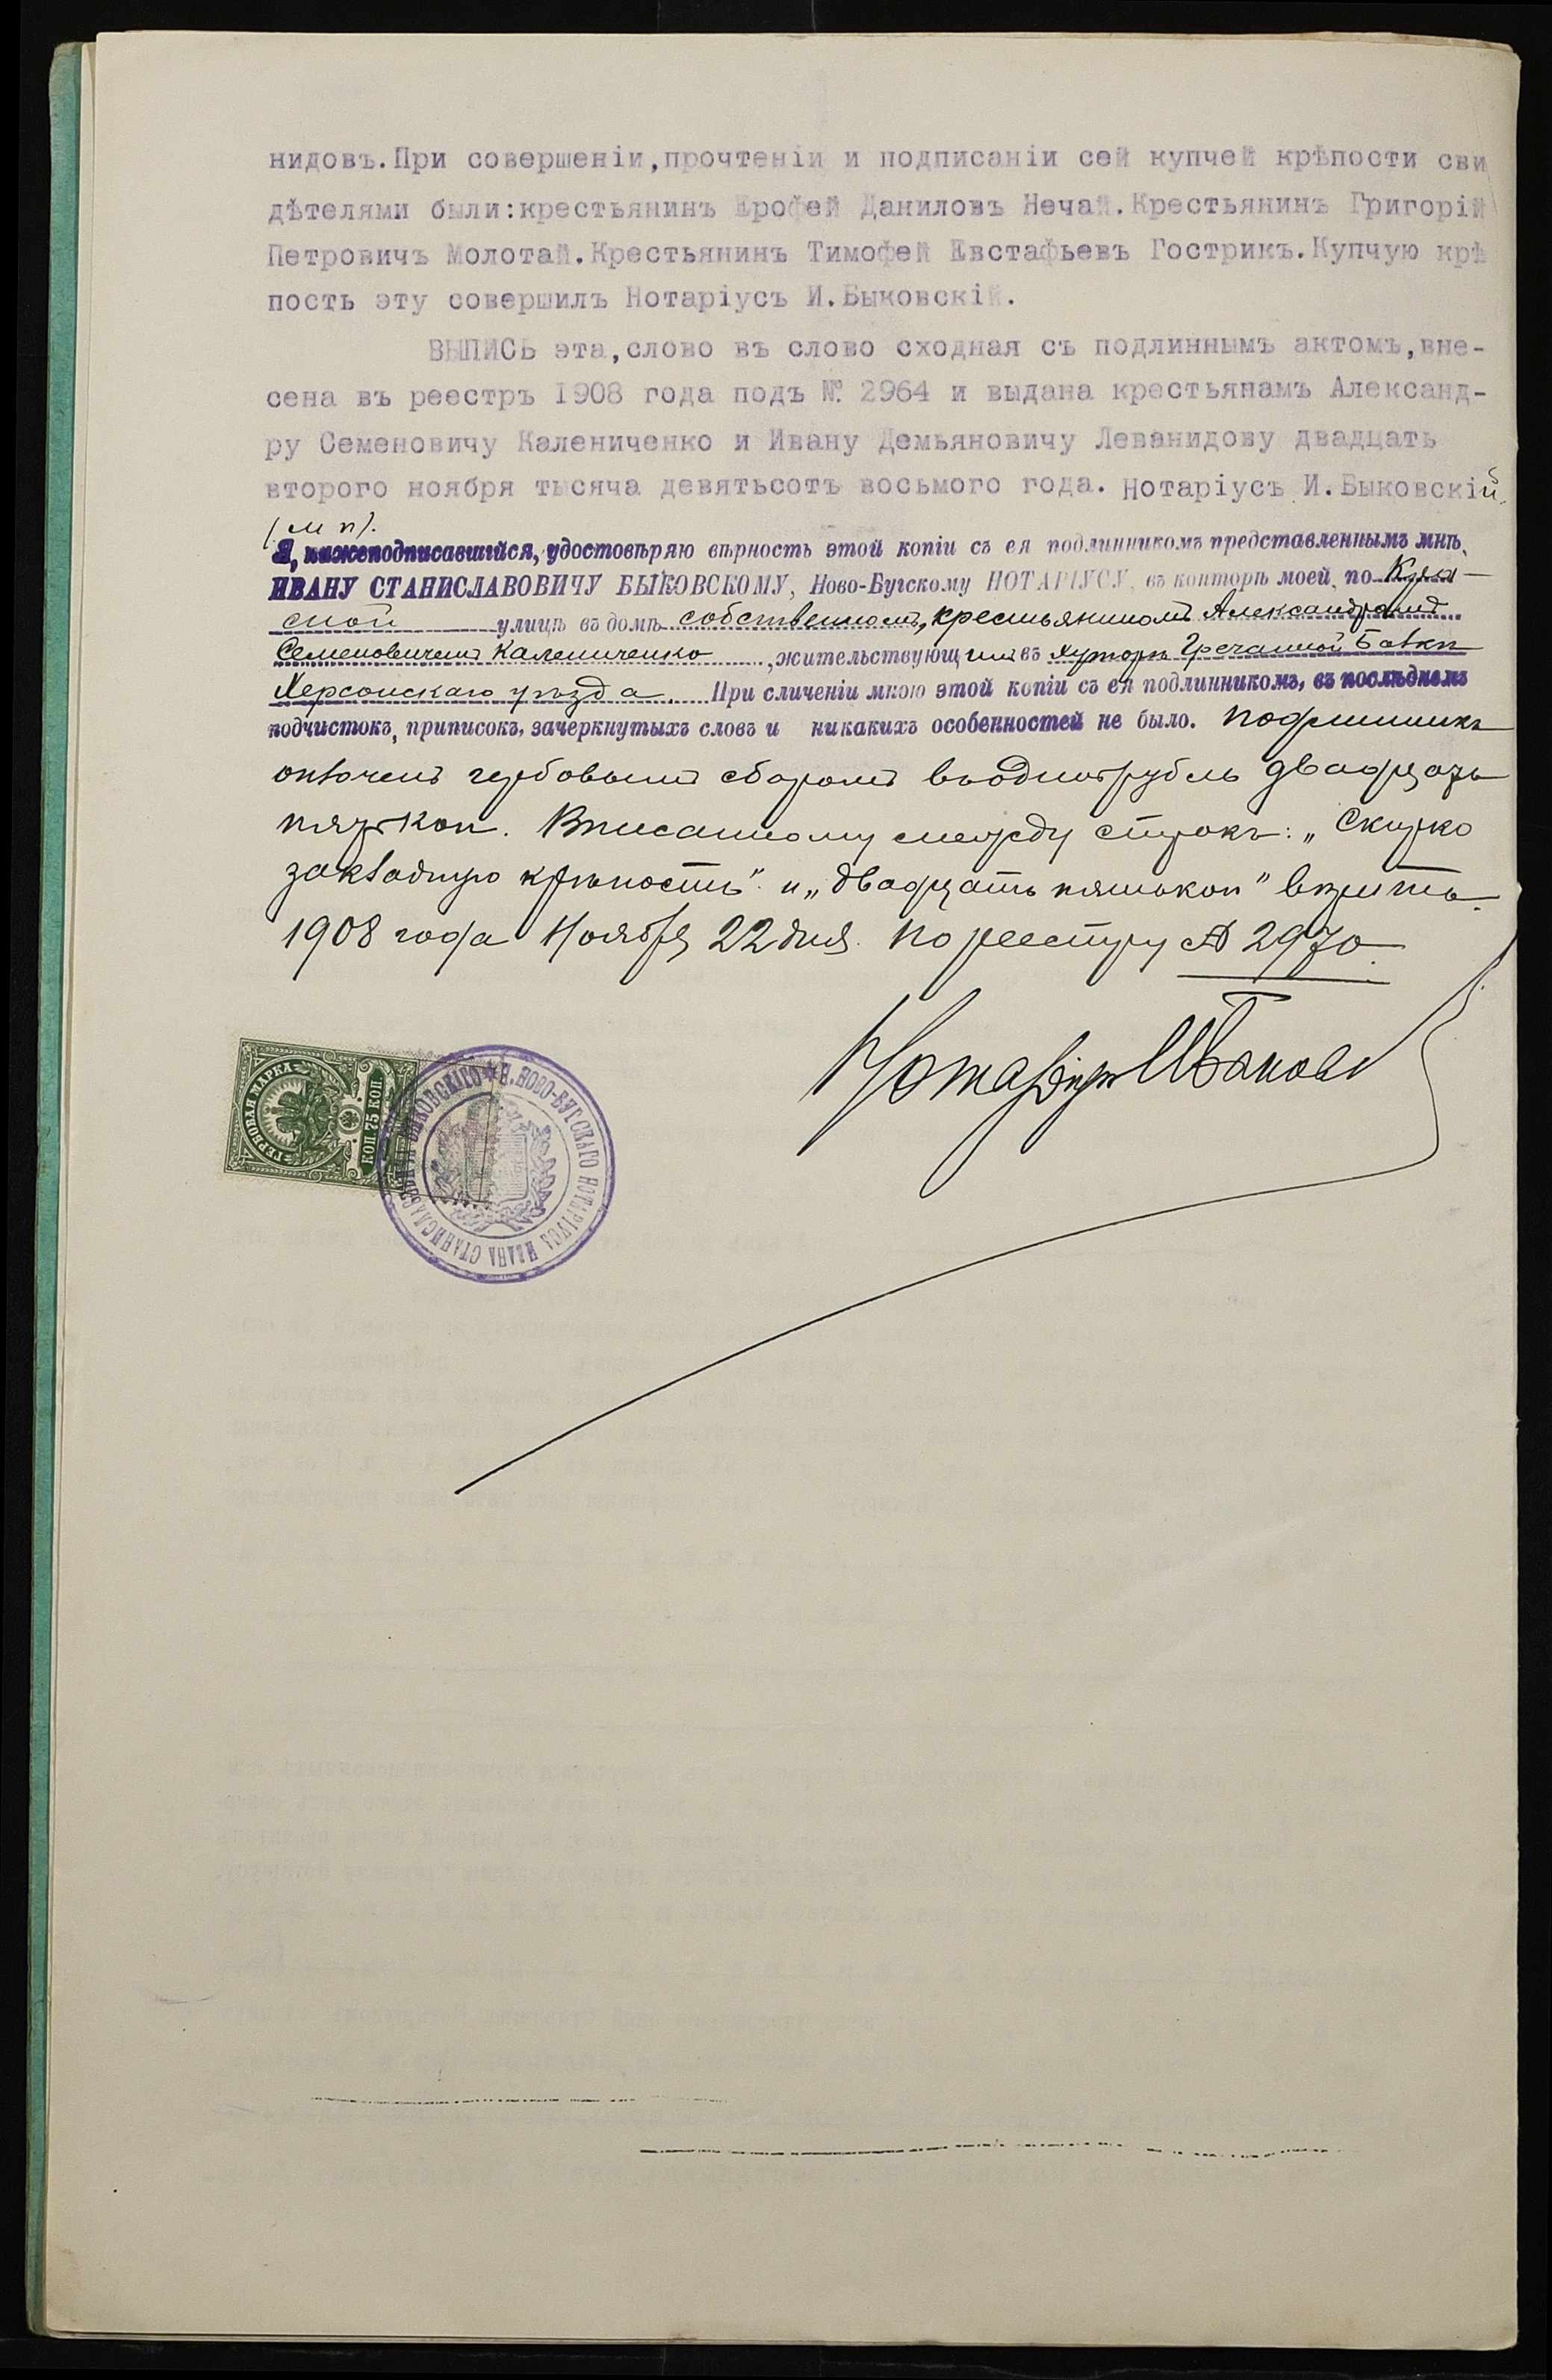 нидовъ.При совершеніи,прочтеніи и подписаніи сей купчей крѣпости сви
дѣтелями были:крестьянинъ Ерофей Даниловъ Нечай.Крестьянинъ Григорій
Петровичъ Молотай.Крестьянинъ Тимофей Евстафьевъ Гострикъ.Купчую крѣ
пость эту совершилъ Нотаріусъ И.Быковскій.
ВЫПИСЬ эта,слово въ слово сходная съ подлиннымъ актомъ,вне-
сена въ реестръ 1908 года подъ № 2964 и выдана крестьянамъ Александ-
ру Семеновичу Калениченко и Ивану Демьяновичу Леванидову двадцать
второго ноября тысяча девятьсотъ восьмого года. Нотаріусъ И.Быковскій.
(М п).
Я, нижеподписавшійся, удостовѣряю вѣрность этой копіи съ ея подлинникомъ представленнымъ мнѣ,
ИВАНУ СТАНИСЛАВОВИЧУ БЫКОВСКОМУ, Ново-Бугскому НОТАРІУСУ, въ конторѣ моей, по
ской улицѣ въ домѣ собственномъ, крестьяниномъ Александромъ
Семеновичемъ Калениченко, жительствующимъ въ хуторѣ Гречаной Балки
Херсонскаго уѣзда. При сличеніи мною этой копіи съ ея подлинникомъ, въ послѣднемъ
подчистокъ, приписокъ, зачеркнутыхъ словъ и никакихъ особенностей не было. Подлинникъ
оплоченъ гербовымъ сборомъ въ одинъ рубль двадцать
пять коп. Вписанному между строкъ: „
закладную крѣпость" и „двадцать пять коп" вѣрить.
1908 года Ноября 22 дня. По реестру № 2970.
Нотаріусъ
ГЕРБОВАЯ МАРКА
КОП 75 КОП
Н.НОВО-БУГСКАГО НОТАРІУСА ИВАНА СТАНИСЛАВОВИЧА БЫКОВСКАГО